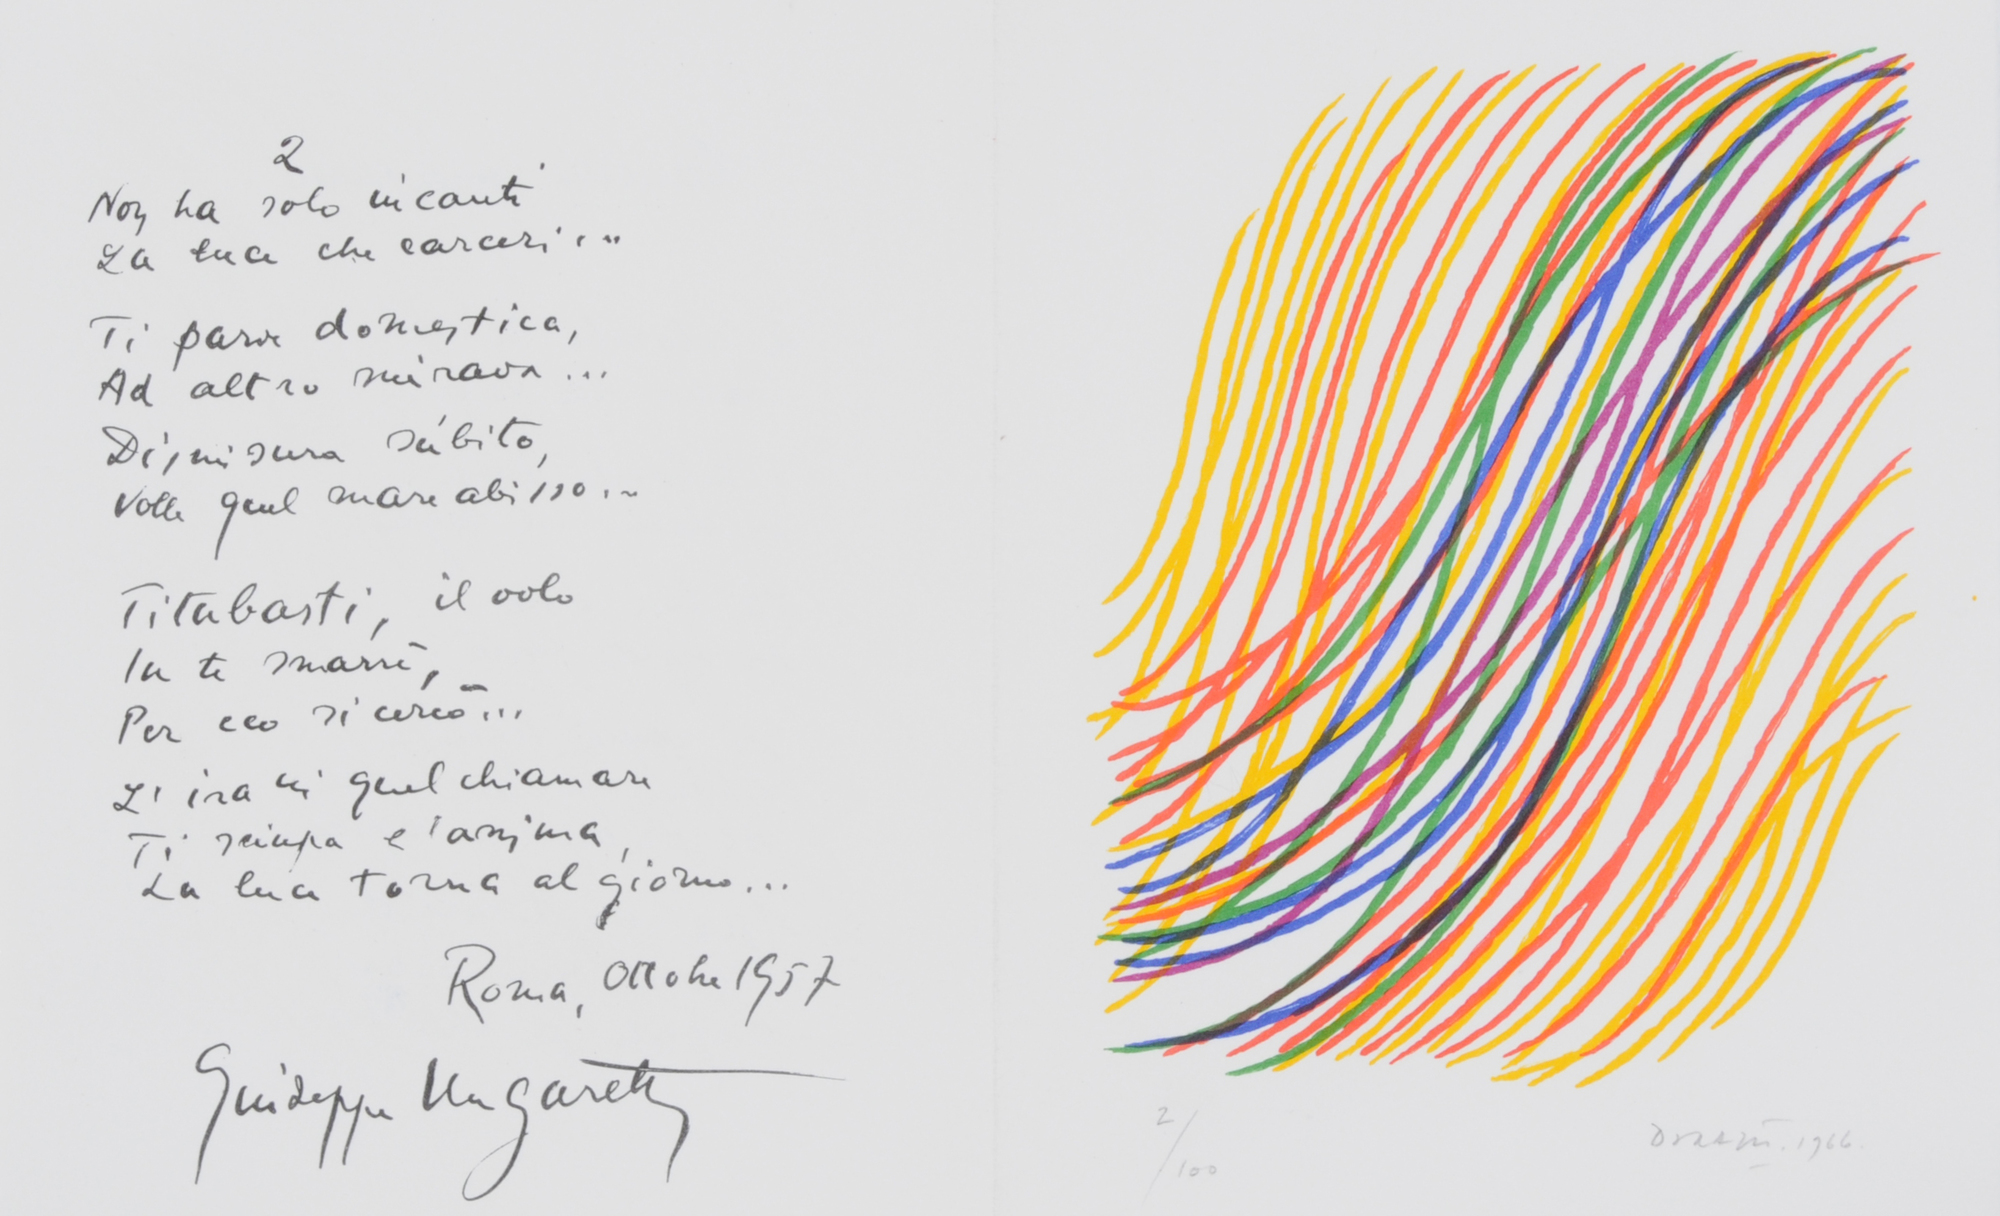 2
Non ha solo incanti
La luce che carceri...
Ti parve domestica,
Ad altro mirava...
Dismisura sùbito,
Volle quel mare abisso...
Titubasti, il volo
In te smarrì,
Per eco si cercò...
L'ira in quel chiamare
Ti sciupa l'anima,
La luce torna al giorno...
Roma, Ottobre 1957
Giuseppe Ungaretti
2/100
Dorazio. 1966.